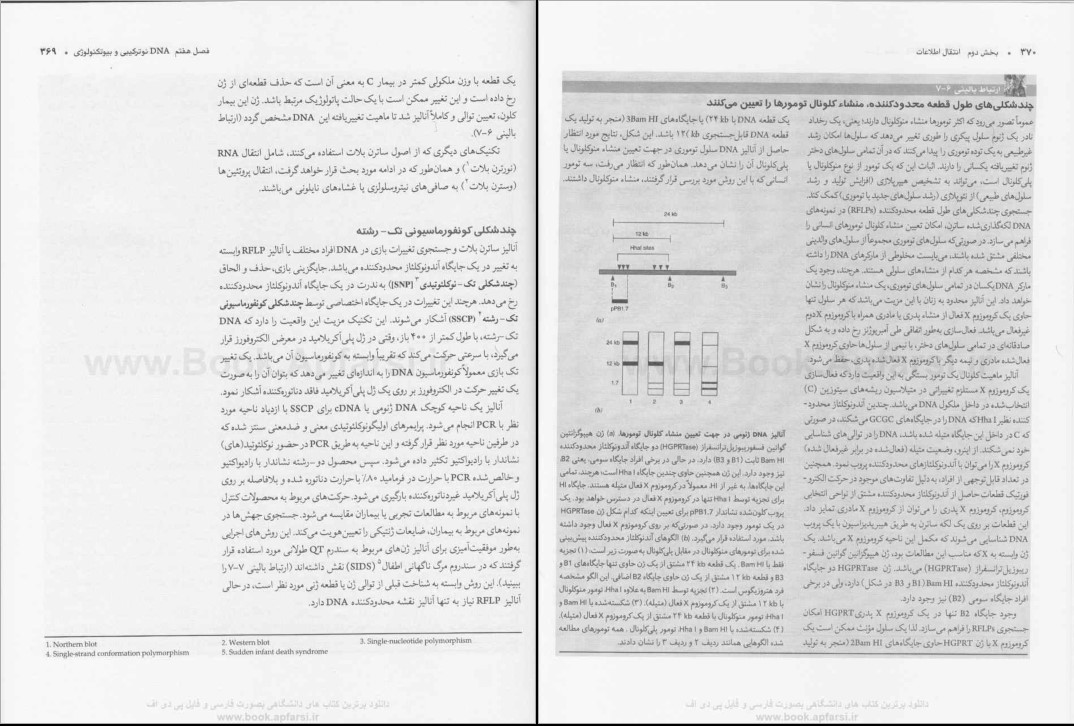 فصل هفتم DNA نوترکیبی و بیوتکنولوژی • ۳۶۹
یک قطعه با وزن ملکولی کمتر در بیمار C به معنی آن است که حذف قطعه‌ای از ژن
رخ داده است و این تغییر ممکن است با یک حالت پاتولوژیک مرتبط باشد. ژن این بیمار
کلون، تعیین توالی و کاملاً آنالیز شد تا ماهیت تغییریافته این DNA مشخص گردد (ارتباط
بالینی ۶-۷).
تکنیک‌های دیگری که از اصول ساترن بلات استفاده می‌کنند، شامل انتقال RNA
(نورترن بلات۱) و همان‌طور که در ادامه مورد بحث قرار خواهد گرفت، انتقال پروتئین‌ها
(وسترن بلات۲) به صافی‌های نیتروسلولزی یا غشاءهای نایلونی می‌باشند.
چندشکلی کونفورماسیونی تک- رشته
آنالیز ساترن بلات و جستجوی تغییرات بازی در DNA افراد مختلف با آنالیز RFLP وابسته
به تغییر در یک جایگاه آندونوکلئاز محدودکننده می‌باشد. جایگزینی بازی، حذف و الحاق
(چندشکلی تک- نوکلئوتیدی۳ [SNP]) به ندرت در یک جایگاه آندونوکلئاز محدودکننده
رخ می‌دهد. هرچند این تغییرات در یک جایگاه اختصاصی توسط چندشکلی کونفورماسیونی
تک- رشته۴ (SSCP) آشکار می‌شوند. این تکنیک مزیت این واقعیت را دارد که DNA
تک-رشته، با طول کمتر از ۴۰۰ باز، وقتی در ژل پلی‌آکریلامید در معرض الکتروفورز قرار
می‌گیرد، با سرعتی حرکت می‌کند که تقریباً وابسته به کونفورماسیون آن می‌باشد. یک تغییر
تک بازی معمولاً کونفورماسیون DNA را به اندازه‌ای تغییر می‌دهد که بتوان آن را به‌صورت
یک تغییر حرکت در الکتروفورز بر روی یک ژل پلی‌آکریلامید فاقد دناتوره‌کننده آشکار نمود.
آنالیز یک ناحیه کوچک DNA ژنومی یا cDNA برای SSCP با ازدیاد ناحیه مورد
نظر با PCR انجام می‌شود. پرایمرهای اولیگونوکلئوتیدی معنی و ضدمعنی سنتز شده که
در طرفین ناحیه مورد نظر قرار گرفته و این ناحیه به‌طریق PCR در حضور نوکلئوتید(های)
نشاندار با رادیواکتیو تکثیر داده می‌شود. سپس محصول دو-رشته نشاندار با رادیواکتیو
و خالص شده PCR با حرارت در فرمامید ۸۰٪ با حرارت دناتوره شده و بلافاصله بر روی
ژل پلی‌آکریلامید غیردناتوره‌کننده بارگیری می‌شود. حرکت‌های مربوط به محصولات کنترل
با نمونه‌های مربوط به مطالعات تجربی یا بیماران مقایسه می‌شود. جستجوی جهش‌ها در
نمونه‌های مربوط به بیماران، ضایعات ژنتیکی را تعیین‌هویت می‌کند. این روش‌های اجرایی
به‌طور موفقیت‌آمیزی برای آنالیز ژن‌های مربوط به سندرم QT طولانی مورد استفاده قرار
گرفتند که در سندروم مرگ ناگهانی اطفال۵ (SIDS) نقش داشته‌اند (ارتباط بالینی ۷-۷ را
ببینید). این روش وابسته به شناخت قبلی از توالی ژن یا قطعه ژنی مورد نظر است، در حالی
آنالیز RFLP نیاز به تنها آنالیز نقشه محدودکننده DNA دارد.
1. Northern blot
2. Western blot
3. Single-nucleotide polymorphism
4. Single-strand conformation polymorphism
5. Sudden infant death syndrome
دانلود برترین کتاب های دانشگاهی بصورت فارسی و فایل پی دی اف
www.book.apfarsi.ir
۳۷۰ • بخش دوم انتقال اطلاعات
ارتباط بالینی ۶-۷
چندشکلی‌های طول قطعه محدودکننده، منشاء کلونال تومورها را تعیین می‌کنند
عموماً تصور می‌رود که اکثر تومورها منشاء منوکلونال دارند؛ یعنی، یک رخداد
نادر یک ژنوم سلول پیکری را طوری تغییر می‌دهد که سلول‌ها امکان رشد
غیرطبیعی به یک توده توموری را پیدا می‌کنند که در آن تمامی سلول‌های دختر
ژنوم تغییریافته یکسانی را دارند. اثبات این که یک تومور از نوع منوکلونال یا
پلی‌کلونال است، می‌تواند به تشخیص هیپرپلازی (افزایش تولید و رشد
سلول‌های طبیعی) از نئوپلازی (رشد سلول‌های جدید یا توموری) کمک کند.
جستجوی چندشکلی‌های طول قطعه محدودکننده (RFLPs) در نمونه‌های
DNA لکه‌گذاری‌شده ساترن، امکان تعیین منشاء کلونال تومورهای انسانی را
فراهم می سازد. در صورتی‌که سلول‌های توموری مجموعاً از سلول‌های والدینی
مختلفی مشتق شده باشند، می‌بایست مخلوطی از مارکرهای DNA را داشته
باشند که مشخصه هر کدام از منشاءهای سلولی هستند. هرچند، وجود یک
مارکر DNA یکسان در تمامی سلول‌های توموری، یک منشاء منوکلونال را نشان
خواهد داد. این آنالیز محدود به زنان با این مزیت می‌باشد که هر سلول تنها
حاوی یک کروموزوم X فعال از منشاء پدری یا مادری همراه با کروموزوم X دوم
غیرفعال می‌باشد. فعال‌سازی به‌طور اتفاقی طی آمبریوژنز رخ داده و به شکل
صادقانه‌ای در تمامی سلول‌های دختر، با نیمی از سلول‌ها حاوی کروموزوم X
فعال‌شده مادری و نیمه دیگر با کروموزوم X فعال‌شده پدری، حفظ می‌شود.
آنالیز ماهیت کلونال یک تومور بستگی به این واقعیت دارد که فعال‌سازی
یک کروموزوم X مستلزم تغییراتی در متیلاسیون ریشه‌های سیتوزین (C)
انتخاب‌شده در داخل ملکول DNA می‌باشد. چندین آندونوکلئاز محدود-
کننده نظیر Hha I که DNA را در جایگاه‌های GCGC می‌شکند، در صورتی
که C در داخل این جایگاه متیله شده باشد، DNA را در توالی‌های شناسایی
خود نمی شکند. از اینرو، وضعیت متیله (فعال‌شده در برابر غیرفعال شده)
کروموزوم X را می‌توان با آندونوکلئازهای محدودکننده پروب نمود. همچنین
در تعداد قابل‌توجهی از افراد، به دلیل تفاوت‌های موجود در حرکت الکترو-
فورتیک قطعات حاصل از آندونوکلئاز محدودکننده مشتق از نواحی انتخابی
کروموزوم، کروموزوم X پدری را می‌توان از کروموزوم X مادری تمایز داد.
این قطعات بر روی یک لکه ساترن به طریق هیبریدیزاسیون با یک پروب
DNA شناسایی می‌شوند که مکمل این ناحیه کروموزوم X می‌باشد. یک
ژن وابسته به X که مناسب این مطالعات بود، ژن هیپوگزانتین گوانین فسفو-
ریبوزیل‌ترانسفراز (HGPRTase) می‌باشد. ژن HGPRTase دو جایگاه
آندونوکلئاز محدودکننده Bam HI (B1 و B3 در شکل) دارد، ولی در برخی
افراد جایگاه سومی (B2) نیز وجود دارد.
وجود جایگاه B2 تنها در یک کروموزوم X پدری HGPRT امکان
جستجوی RFLPs را فراهم می‌سازد. لذا یک سلول مؤنث ممکن است یک
کروموزوم X با ژن HGPRT حاوی جایگاه‌های 2Bam HI (منجر به تولید
یک قطعه DNA با ۲۴ kb) یا جایگاه‌های 3Bam HI (منجر به تولید یک
قطعه DNA قابل‌جستجوی ۱۲ kb) باشد. این شکل، نتایج مورد انتظار
حاصل از آنالیز DNA سلول توموری در جهت تعیین منشاء منوکلونال یا
پلی‌کلونال آن را نشان می دهد. همان‌طور که انتظار می‌رفت، سه تومور
انسانی که با این روش مورد بررسی قرار گرفتند، منشاء منوکلونال داشتند.
24 kb
12 kb
HhaI sites
B1
B2
B3
pPB1.7
(a)
24 kb
12 kb
1.7
1 2 3 4
(b)
آنالیز DNA ژنومی در جهت تعیین منشاء کلونال تومورها. (a) ژن هیپوگزانتین
گوانین فسفوریبوزیل‌ترانسفراز (HGPRTase) دو جایگاه آندونوکلئاز محدودکننده
Bam HI ثابت (B1 و B3) دارد، در حالی در برخی افراد جایگاه سومی، یعنی B2،
نیز وجود دارد. این ژن همچنین حاوی چندین جایگاه Hha I است؛ هرچند، تمامی
این جایگاه‌ها، به غیر از HI، معمولاً در کروموزوم X فعال متیله هستند. جایگاه HI
برای تجزیه توسط Hha I تنها در کروموزوم X فعال در دسترس خواهد بود. یک
پروب کلون‌شده نشاندار pPB1.7 برای تعیین اینکه کدام شکل ژن HGPRTase
در یک تومور وجود دارد، در صورتی‌که بر روی کروموزوم X فعال وجود داشته
باشد، مورد استفاده قرار می‌گیرد. (b) الگوهای آندونوکلئاز محدودکننده پیش‌بینی
شده برای تومورهای منوکلونال در مقابل پلی‌کلونال به‌صورت زیر است: (۱) تجزیه
فقط با Bam HI. یک قطعه ۲۴ kb مشتق از یک ژن حاوی تنها جایگاه‌های B1 و
B3 و قطعه ۱۲ kb مشتق از یک ژن حاوی جایگاه B2 اضافی. این الگو مشخصه
فرد هتروزیگوس است. (۲) تجزیه توسط Bam HI به علاوه Hha I. تومور منوکلونال
با ۱۲ kb مشتق از یک کروموزوم X فعال (متیله). (۳) شکسته‌شده با Bam HI و
Hha I. تومور منوکلونال با قطعه ۲۴ kb مشتق از یک کروموزوم X فعال (متیله).
(۴) شکسته‌شده با Bam HI و Hha I. تومور پلی‌کلونال. همه تومورهای مطالعه
شده الگوهایی همانند ردیف ۲ و ردیف ۳ را نشان دادند.
دانلود برترین کتاب های دانشگاهی بصورت فارسی و فایل پی دی اف
www.book.apfarsi.ir